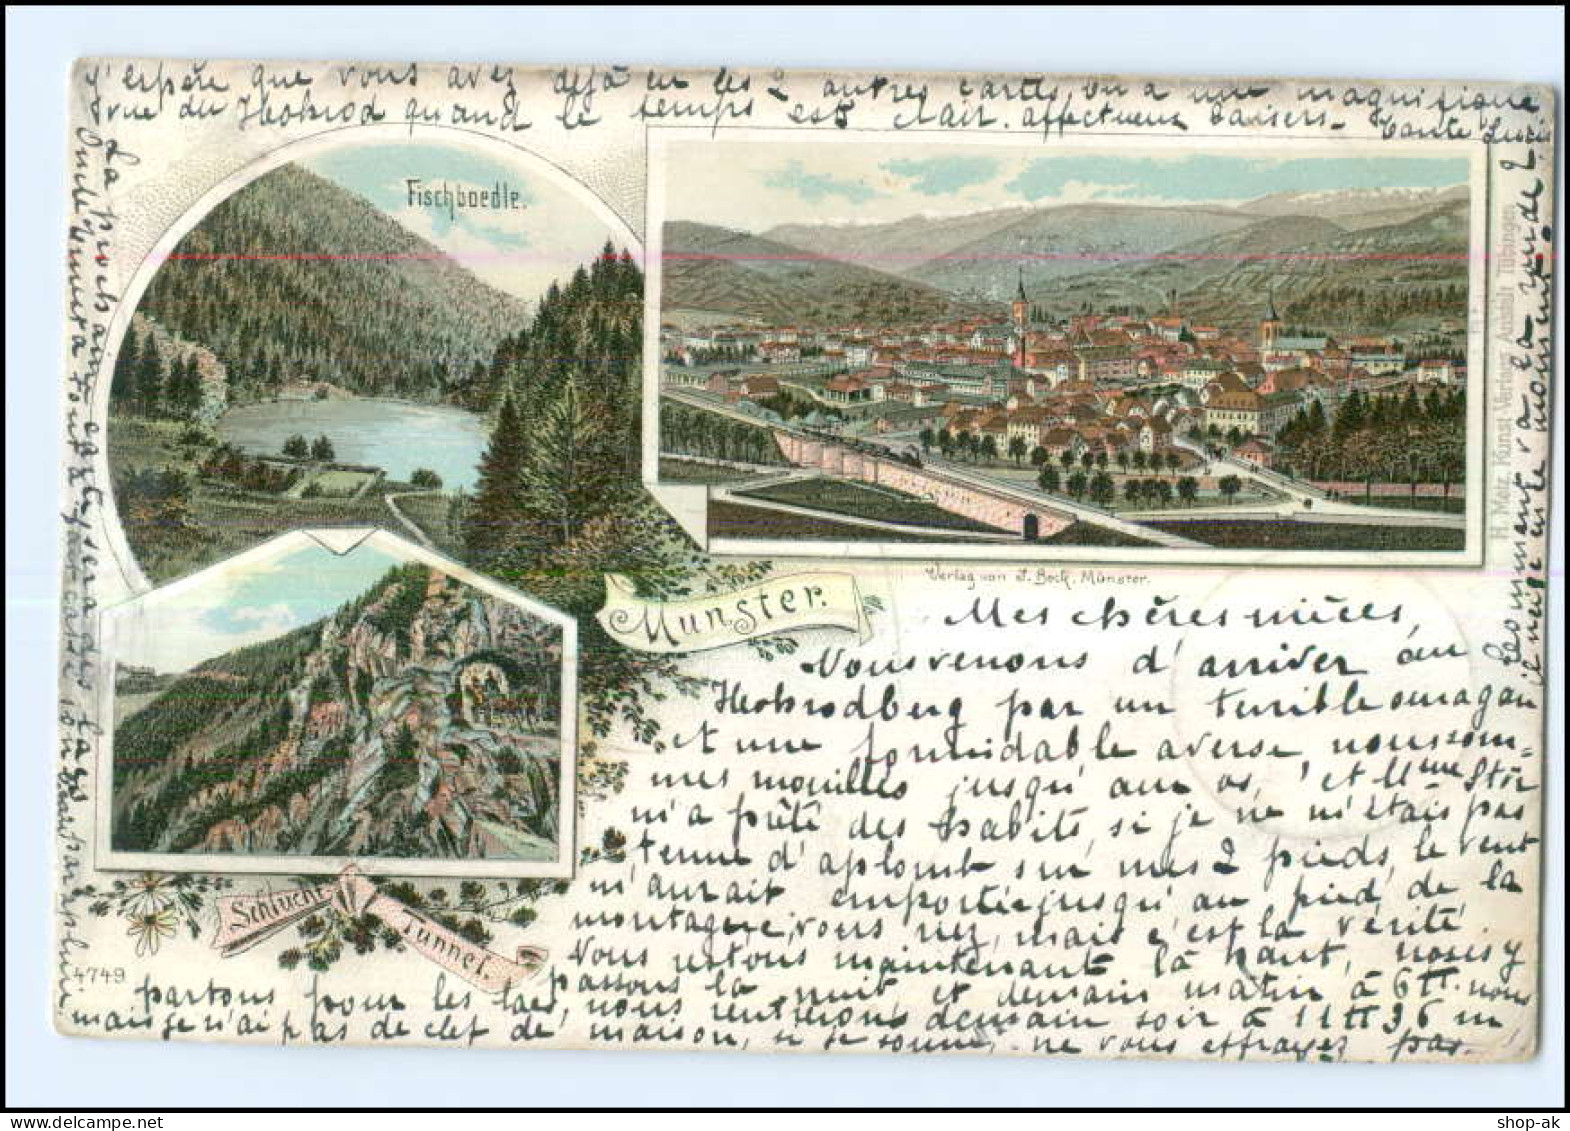 j'espère que vous avez déjà eu les 2 autres cartes, on a une magnifique
vue du Hohrod quand le temps est clair. affectueux baisers - Tante
Fischboedle.
Verlag von J. Beck, Münster.
H. Metz, Kunst-Verlags Anstalt Tübingen
Munster.
Schlucht
Tunnel.
4749
Mes chères nièces,
Nous venons d'arriver au
Hohrodberg par un terrible ouragan
et une formidable averse, nous som=
mes mouillés jusqu'aux os, et Mme
m'a prêté des habits, si je ne m'étais pas
tenue d'aplomb sur mes 2 pieds, le vent
m'aurait emportée jusqu'au pied de la
montagne, vous riez, mais c'est la vérité.
Nous restons maintenant là haut, nous y
passons la nuit et demain matin à 6 h. nous
partons pour les lacs, nous rentrerons demain soir à 11 h 36 m
mais je n'ai pas de clef de maison, si je sonne, ne vous effrayez pas.
La prochaine carte sera des lacs
Comment va la